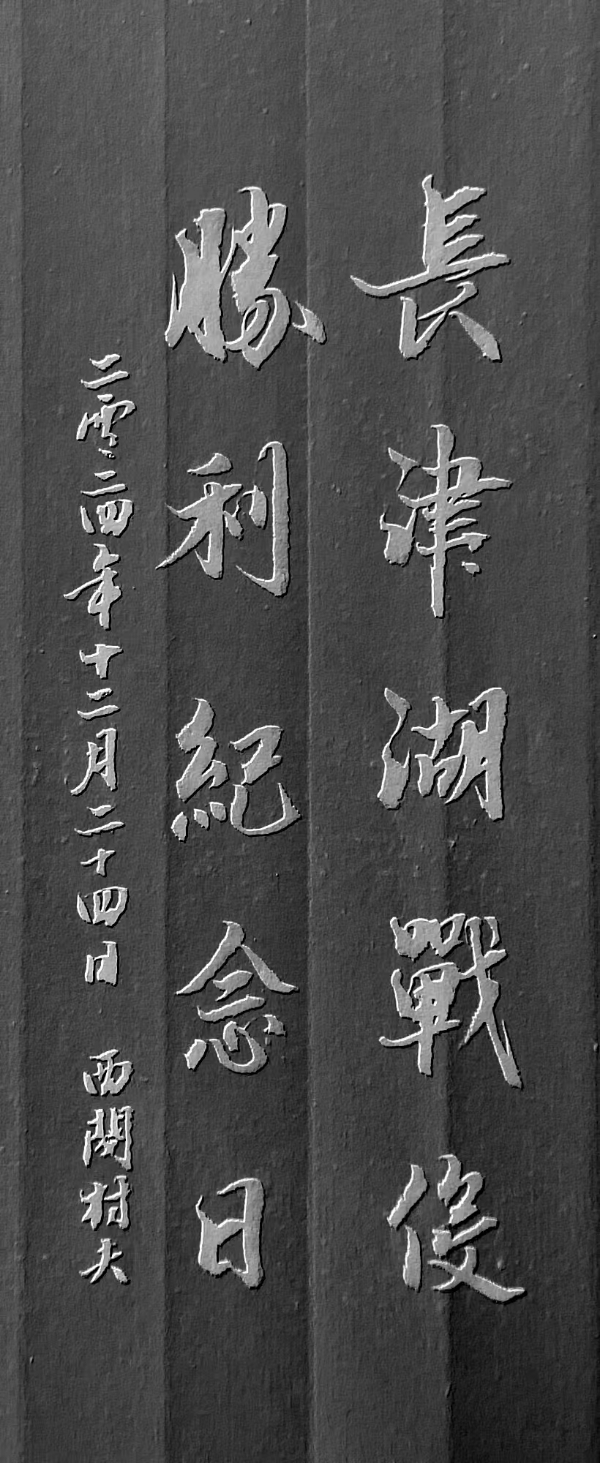 長津湖戰役
勝利紀念日
二零二四年十二月二十四日 西関村夫